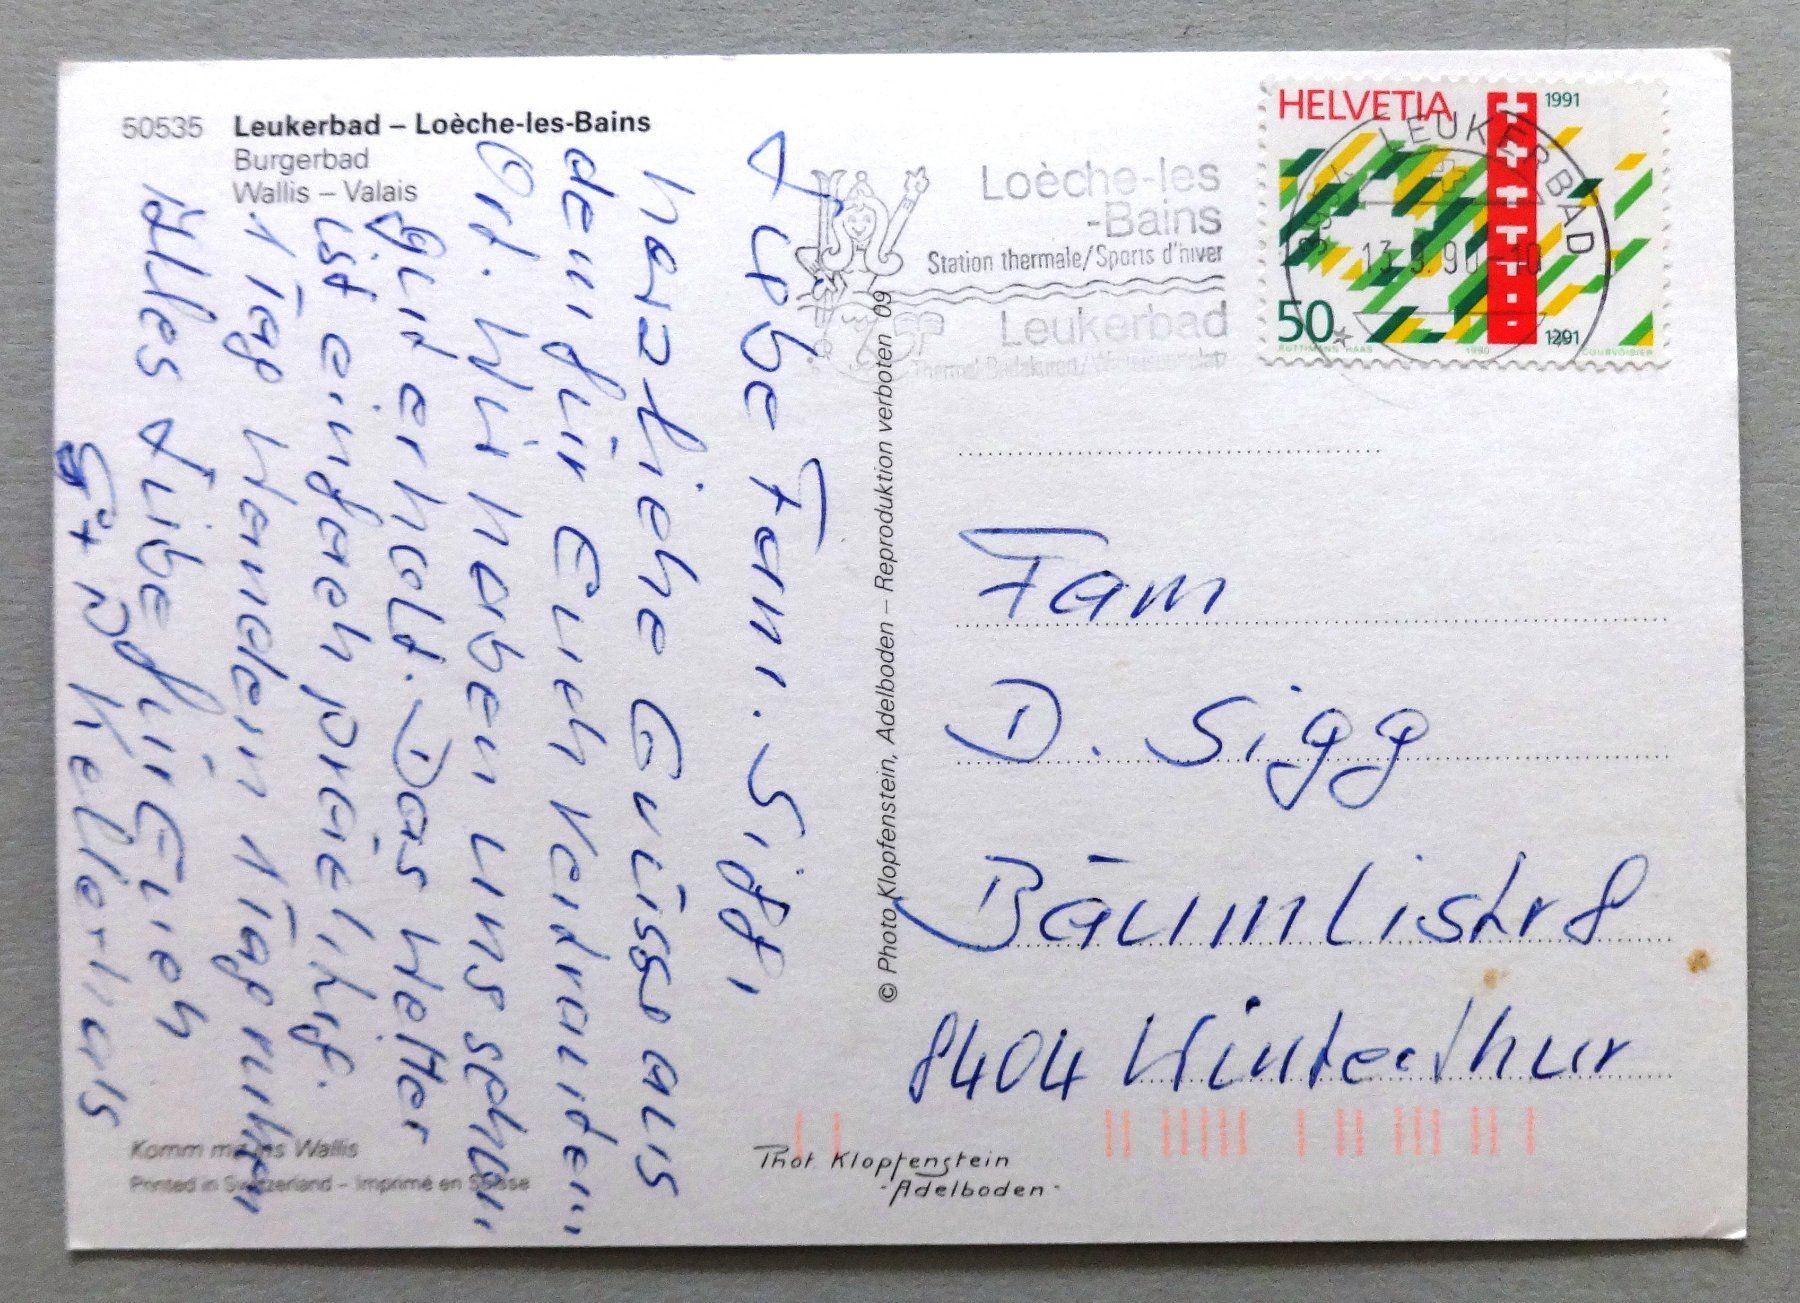 50535 Leukerbad – Loèche-les-Bains
Burgerbad
Wallis – Valais
Liebe Fam. Sigg,
herzliche Grüsse aus
dem für Euch vertrauten
Ort. Wir haben uns schon
gut erholt. Das Wetter
ist einfach prächtig.
1 Tag wandern 1 Tag ruhen
Alles Liebe für Euch
G + D Kellerhals
Komm mit ins Wallis
Printed in Switzerland – Imprimé en Suisse
© Photo Klopfenstein, Adelboden – Reproduktion verboten 09
Loèche-les
-Bains
Station thermale/Sports d'hiver
Leukerbad
HELVETIA
1991
50
1291
RÜTTIMANN HAAS 1990 COURVOISIER
3954 LEUKERBAD
13.9.90-10
Fam
D. Sigg
Bäumlistr 8
8404 Winterthur
Phot. Klopfenstein
-Adelboden-